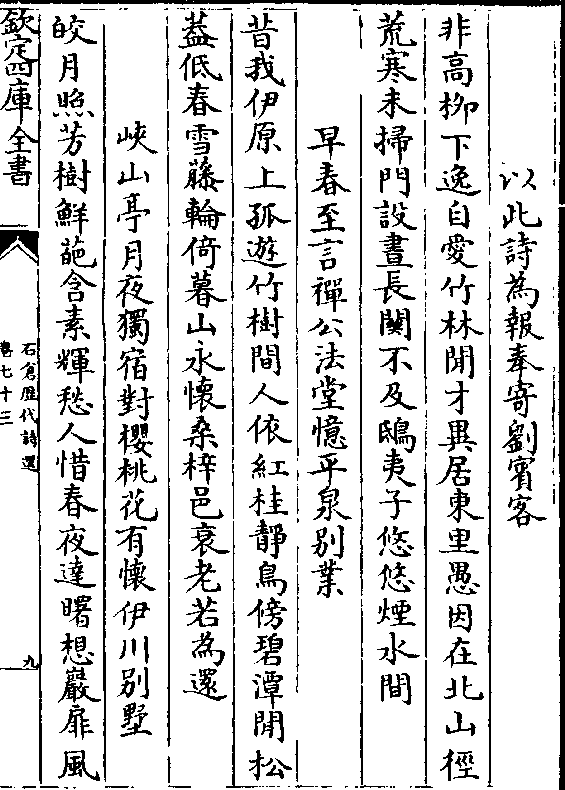 以此詩為報奉寄劉賓客
非高栁下逸自愛竹林閒才異居東里愚因在北山徑
荒寒未掃門設晝長闗不及鴟夷子悠悠煙水間
早春至言禪公法堂憶平泉别業
昔我伊原上孤遊竹樹間人依紅桂靜鳥傍碧潭閒松
葢低春雪藤輪倚暮山永懷桑梓邑衰老若為還
峽山亭月夜獨宿對櫻桃花有懷伊川别墅
皎月照芳樹鮮葩含素輝愁人惜春夜達曙想巖扉風
欽定四庫全書
石倉歴代詩選
卷七十三
九